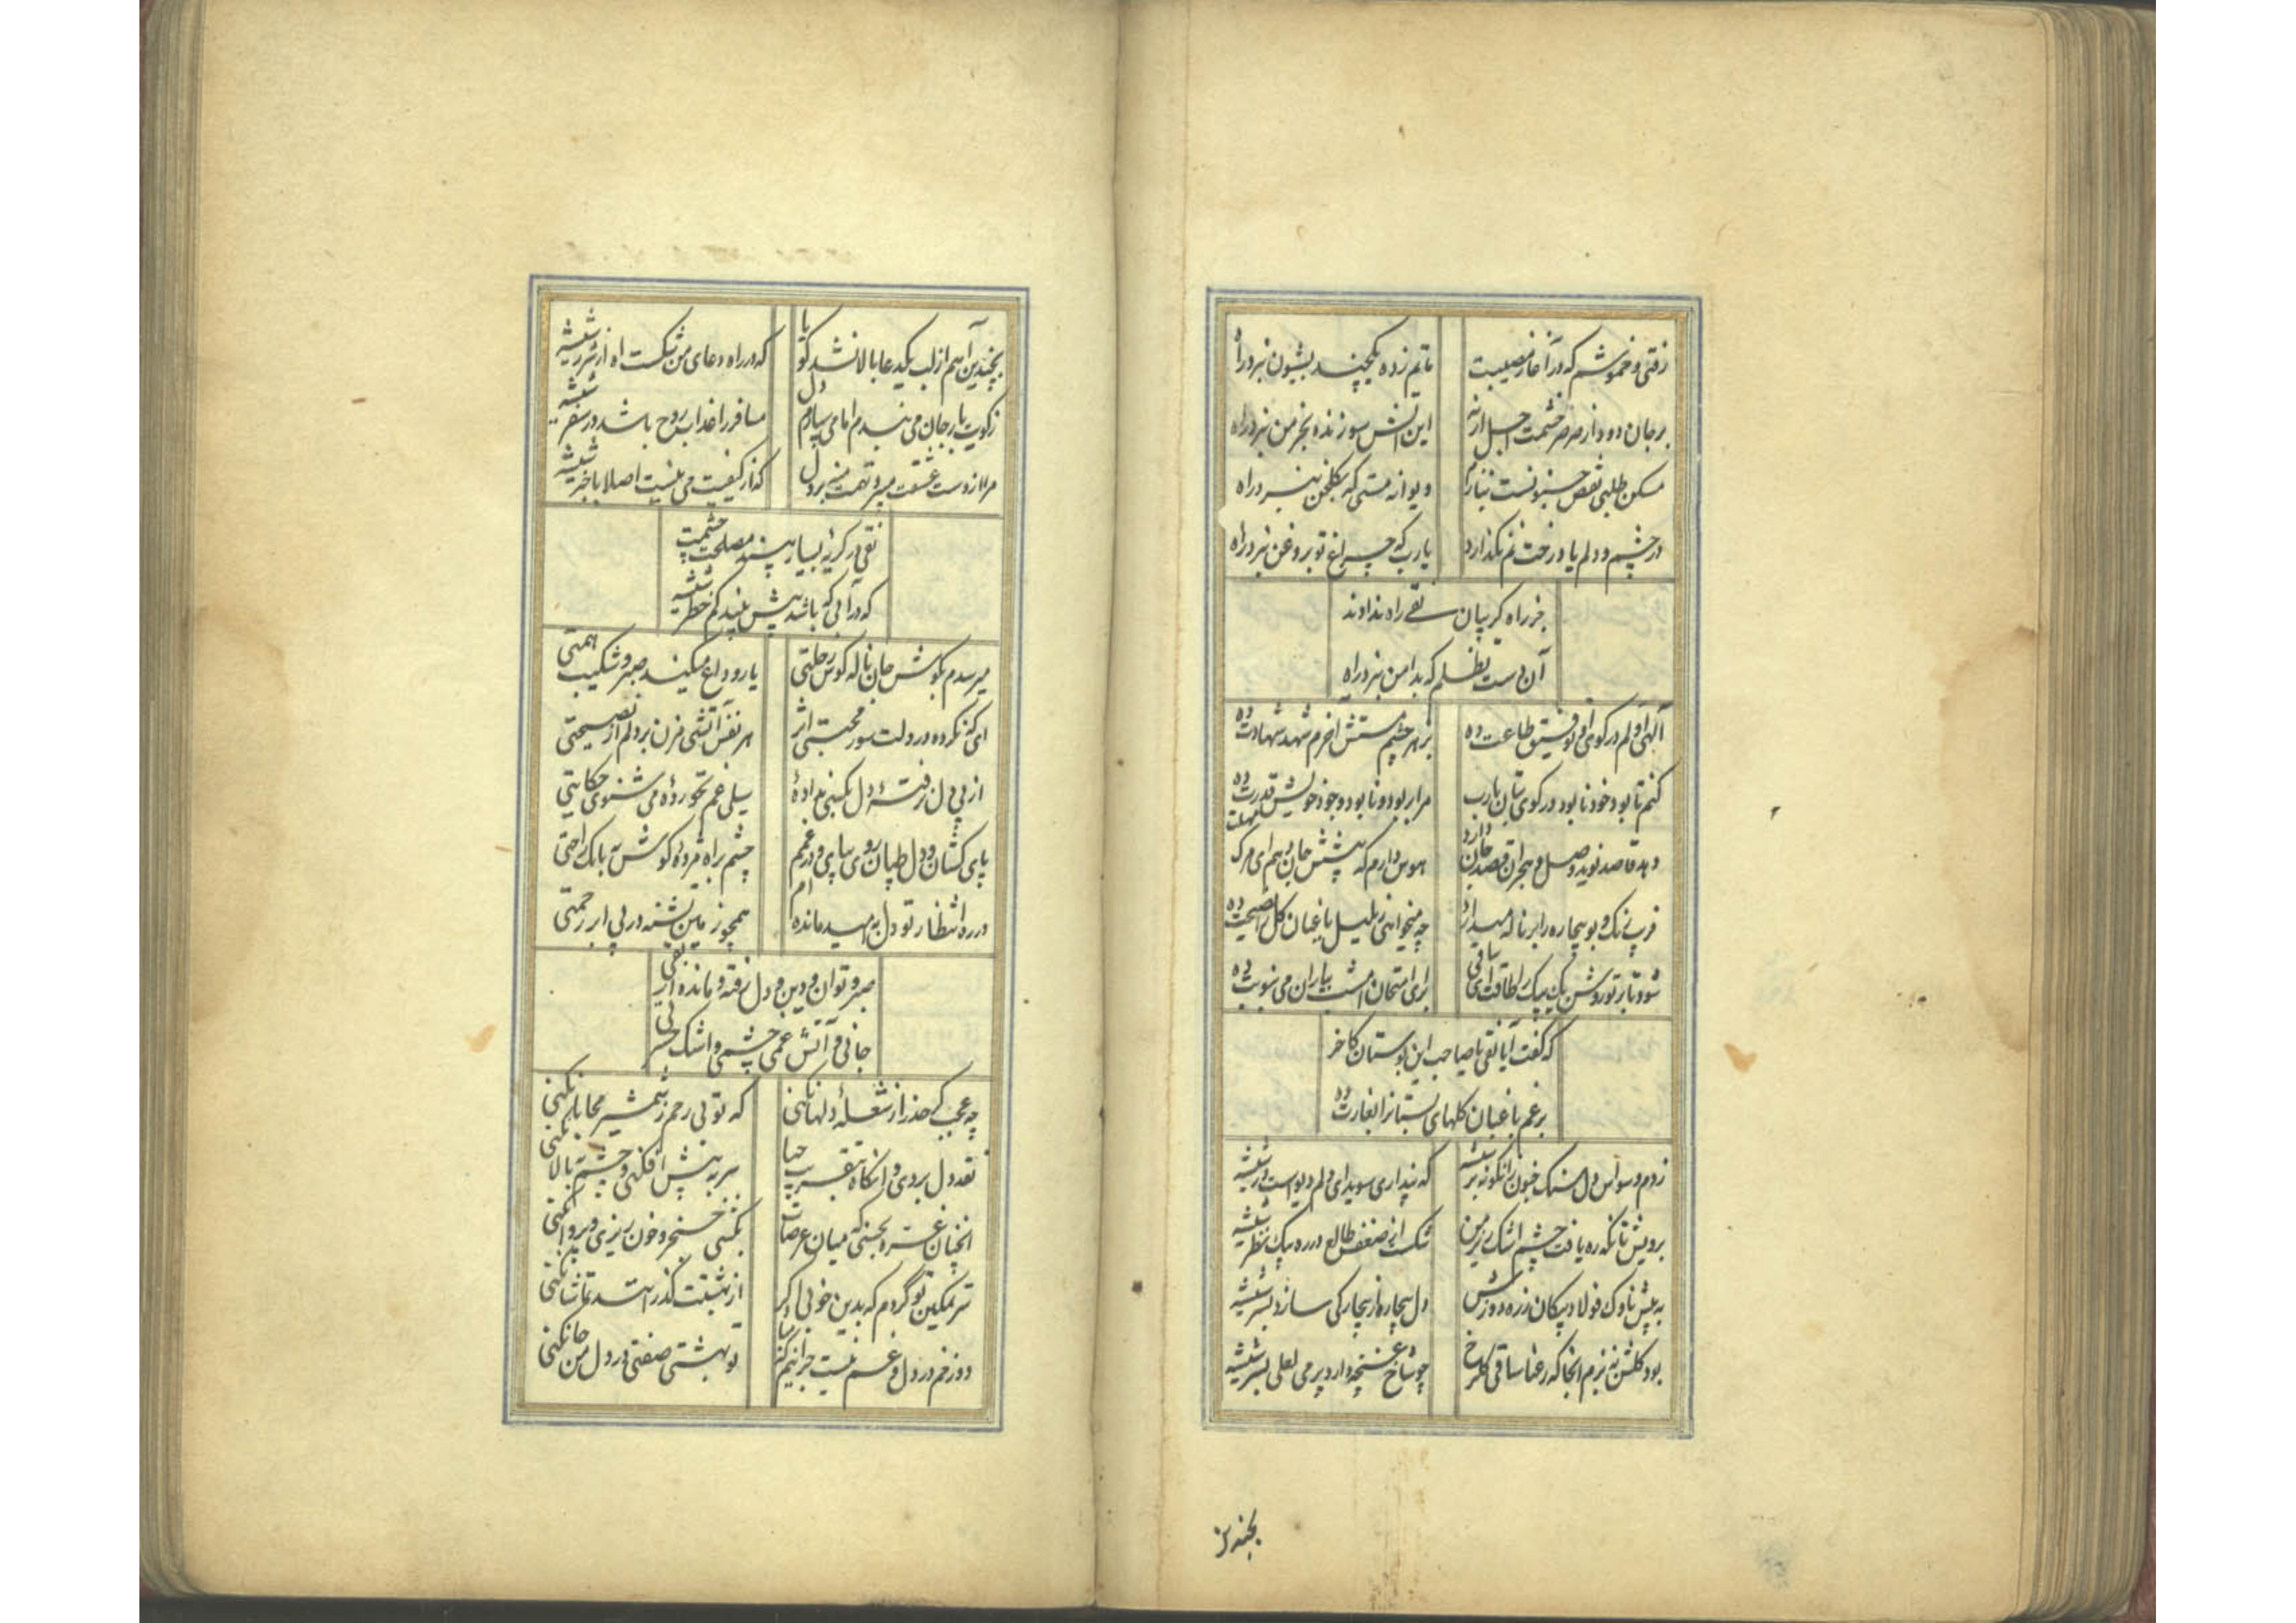 رفتی و خموشم که در آغاز مصیبت ماتم زده یکچند بشیون نبرد راه
بر جان دود از صرصر خشمت اجل ار نه این آتش سوزنده بخرمن نبرد راه
مسکن طلبی نقص جنونست نیازم دیوانه مستی که بگلخن نبرد راه
در چشم و دلم یا رخت نم نگذارد یارب که چراغ تو بروغن نبرد راه
جز راه گریبان نقی راه ندادند
آن دست تظلم که بدامن نبرد راه
الهی اولم در کوی او توفیق طاعت ده بزهر چشم مستش آخرم شهد شهادت ده
کنم تا بود خود نابود در کوی بتان یارب مرا بر بود و نابود وجود خویش قدرت ده
دهد قاصد نوید وصل و هجران قصد جان دارد هوس دارم که پیشش جان دهم ای مرگ مهلت ده
فریب رنگ و بو بیچاره را بر ناله میدارد چه میخواهی ز بلبل باغبان گل را نصیحت ده
شود تا بر تو روشن یک بیک را طاقت ای ساقی برای امتحان امشب بیاران می بنوبت ده
که گفت آیا نقی با صاحب این بوستان کاخر
برغم باغبان گلهای بستانرا بغارت ده
زدم وسواس دل سنگ جنون زانگونه بر شیشه که پنداری سویدای دلم دیو است در شیشه
برویش تا نگه ره یافت چشم اشک ریز من شکست از ضعف طالع در ره پیک نظر شیشه
به پیش ناوک فولاد پیکان زره دوزش دل بیچاره از بیچارگی سازد سپر شیشه
بود گلشن نه بزم آنجا که رعنا ساقی گلرخ چو شاخ غنچه دارد پر می لعلی بسر شیشه
بچندین
بچندین آهم از لب یکدعا بالا نشد گویا که در راه دعای من شکست آه از شرر شیشه
ز کویت بار جان می بندم اما می سپارم دل مسافر را عذاب روح باشد در سفر شیشه
مرا از دست عشقت میرود تهمت منه بر دل که از کیفیت می نیست اصلا باخبر شیشه
نقی در گریه بسیار بینم مصلحت چشمت
که در آبی که باشد بیش بیند کم خطر شیشه
میرسدم بگوش جان ناله کوس رحلتی یار وداع میکند صبر و شکیب همتی
ای که نکرده در دلت سوز محبتی اثر هر نفس آتشی مزن بر دلم از نصیحتی
از پی دل نرفتهٔ دل بکسی ندادهٔ سیلی غم نخوردهٔ می شنوی حکایتی
پای کشان و دل طپان روی سیاهی و در غمم چشم براه مژدهٔ گوش به بانگ راحتی
در ره انتظار تو دل به امید مانده ام همچو زمین تشنه در پی ابر رحمتی
صبر و توان و دین و دل رفته و مانده از نقی
جانی و آتش غمی چشمی و اشک حسرتی
چه عجب گر حذر از شعلهٔ دلها نکنی که تو بی رحم ز شمشیر محابا نکنی
نقد دل بردی و آنگاه بتقریب حیا سر به پیش افکنی و چشم به بالا نکنی
آنچنان غره بحسنی که میان عرصات بکشی خنجر و خون ریزی و پروا نکنی
سر تمکین تو گردم که بدین خوبی اگر از بهشتت گذر افتد تماشا نکنی
دوزخم در دل و غم نیست جز اینم که مبا تو بهشتی صفتی در دل من جا نکنی